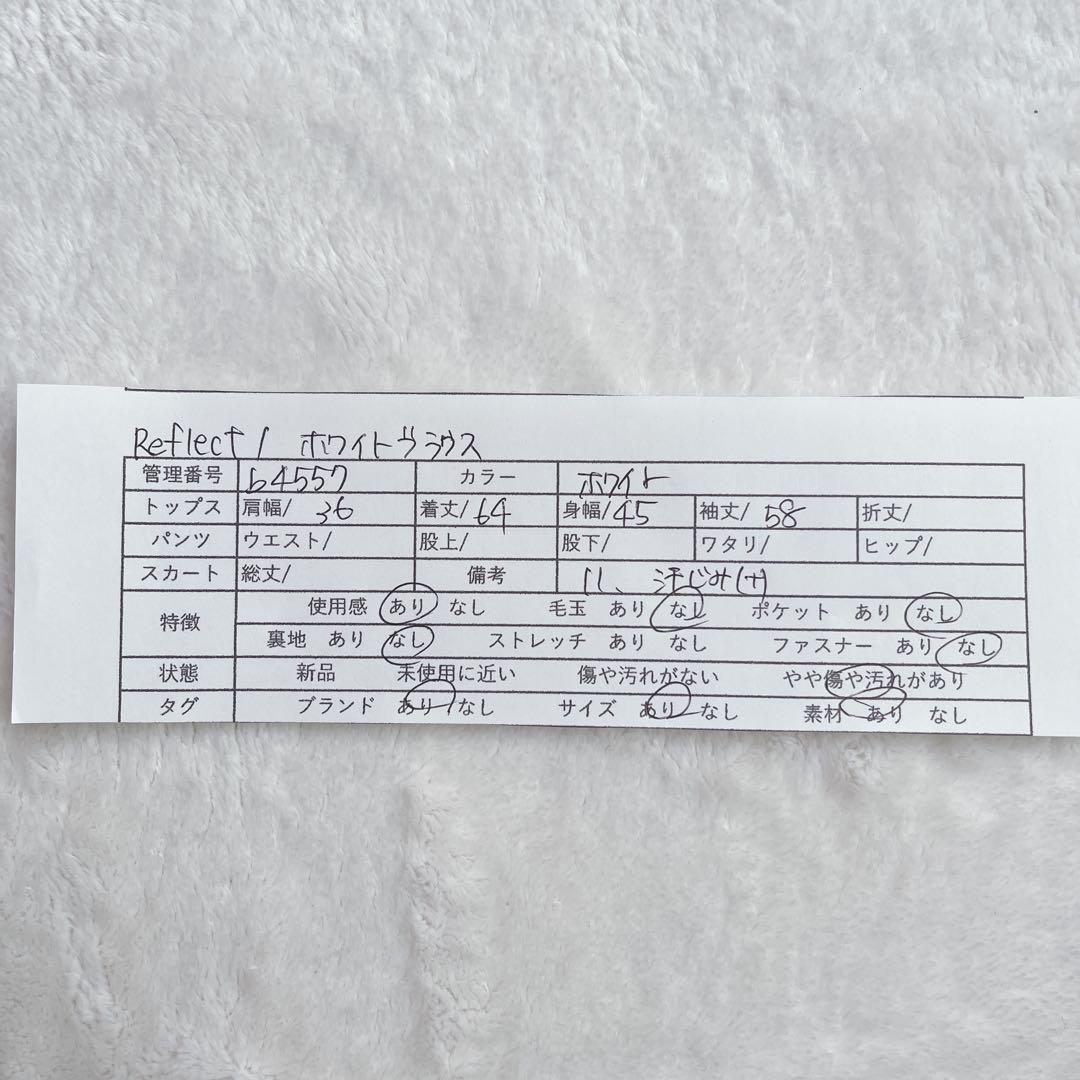 Reflect / ホワイトブラウス
管理番号 b4557 カラー ホワイト
トップス 肩幅/ 36 着丈/ 64 身幅/ 45 袖丈/ 58 折丈/
パンツ ウエスト/ 股上/ 股下/ ワタリ/ ヒップ/
スカート 総丈/ 備考 11、汗じみ(+)
特徴 使用感 あり なし 毛玉 あり なし ポケット あり なし
裏地 あり なし ストレッチ あり なし ファスナー あり なし
状態 新品 未使用に近い 傷や汚れがない やや傷や汚れがあり
タグ ブランド あり なし サイズ あり なし 素材 あり なし